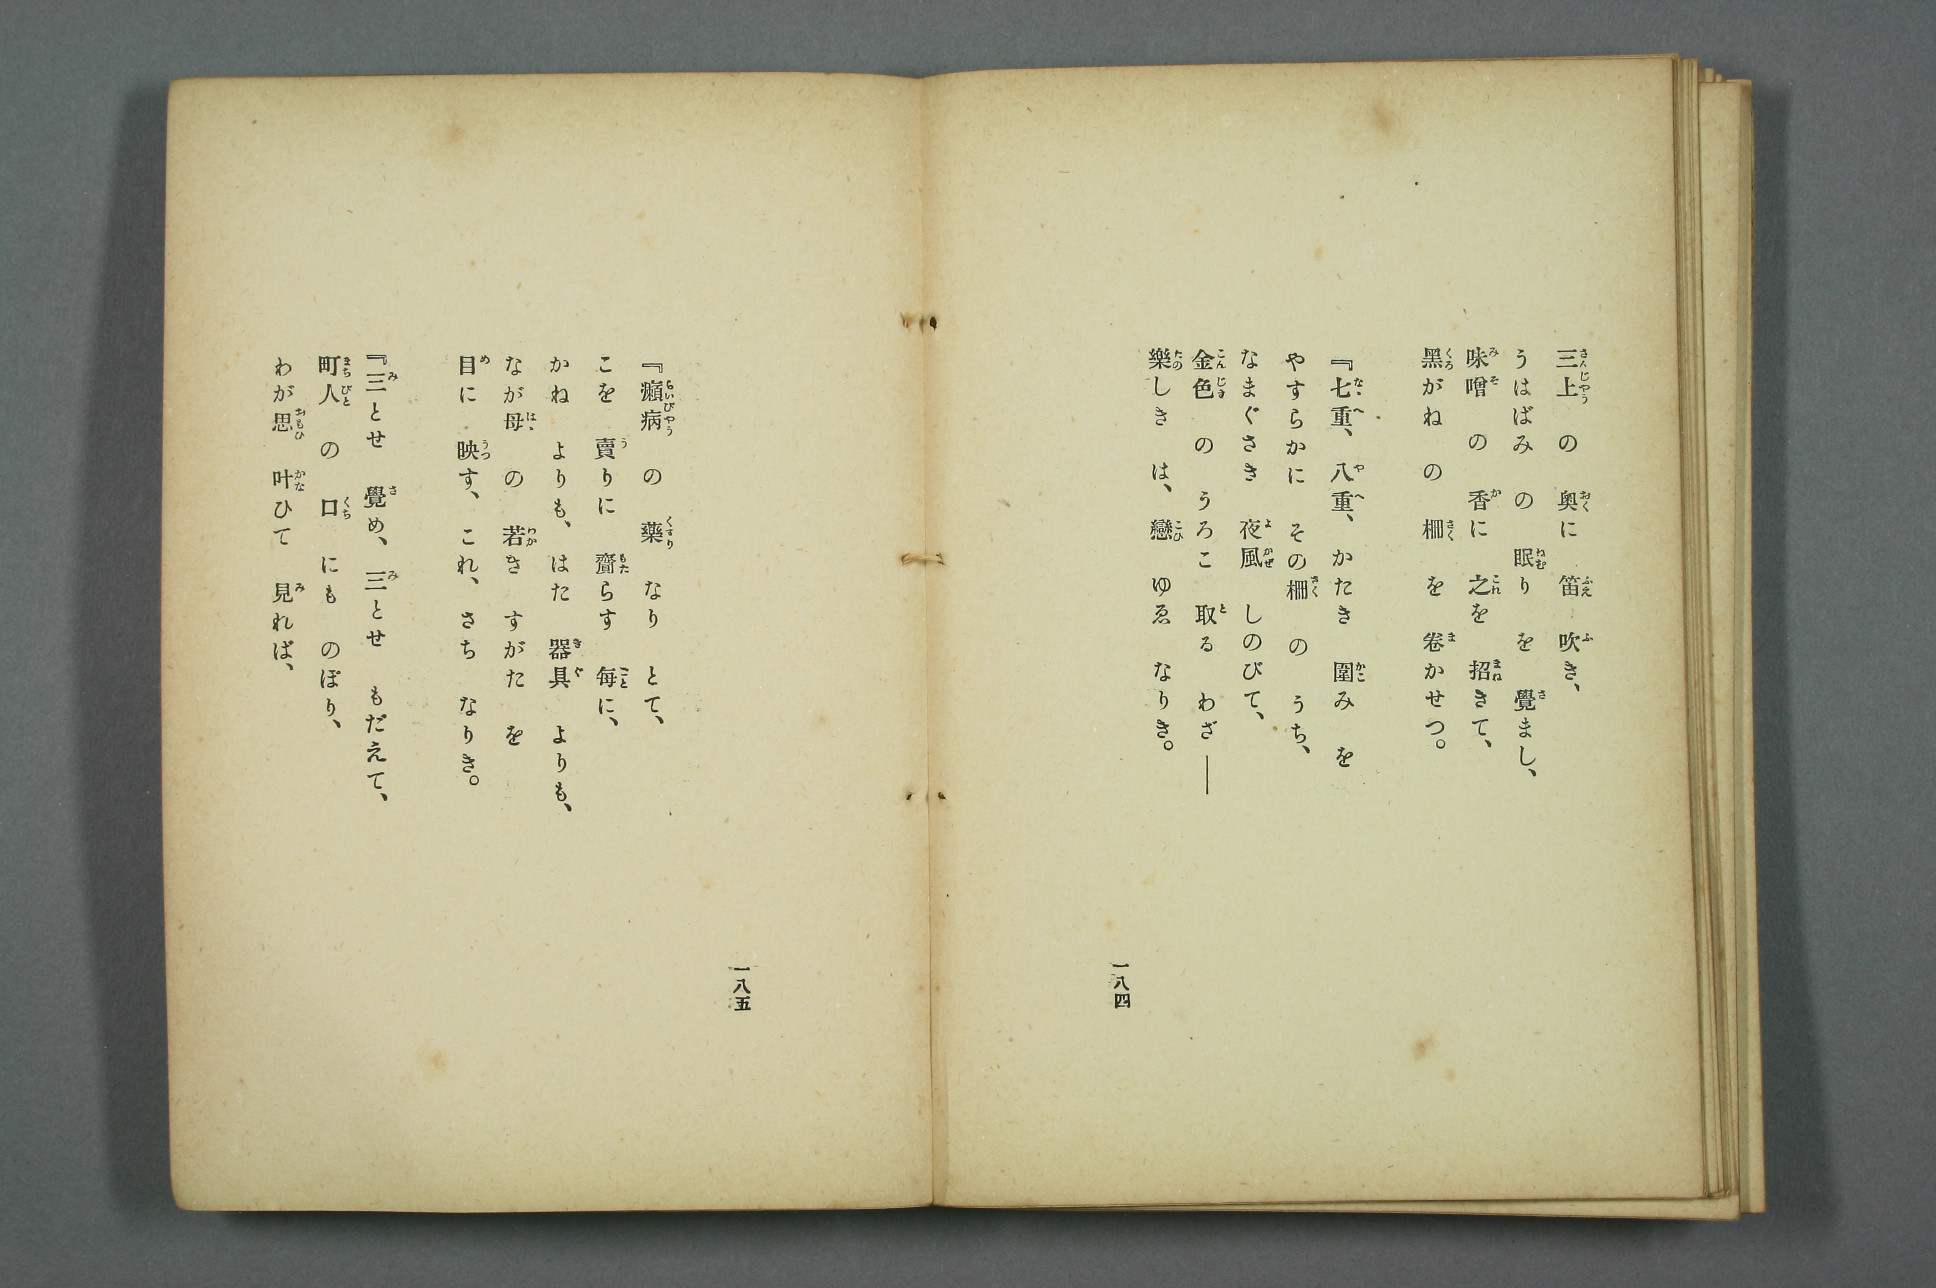 三上 の 奧に 笛 吹き、
うはばみ の 眠り を 覺まし、
味噌 の 香に 之を 招きて、
黑がね の 柵 を 卷かせつ。
『七重、八重、かたき 圍み を
やすらかに その柵 の うち、
なまぐさき 夜風 しのびて、
金色 の うろこ 取る わざ ――
樂しき は、戀 ゆゑ なりき。
一八四
『癩病 の 藥 なり とて、
こを 賣りに 齎らす 每に、
かね よりも、はた 器具 よりも、
なが母 の 若き すがた を
目に 映す、これ、さち なりき。
『三とせ 覺め、三とせ もだえて、
町人 の 口 にも のぼり、
わが思 叶ひて 見れば、
一八五